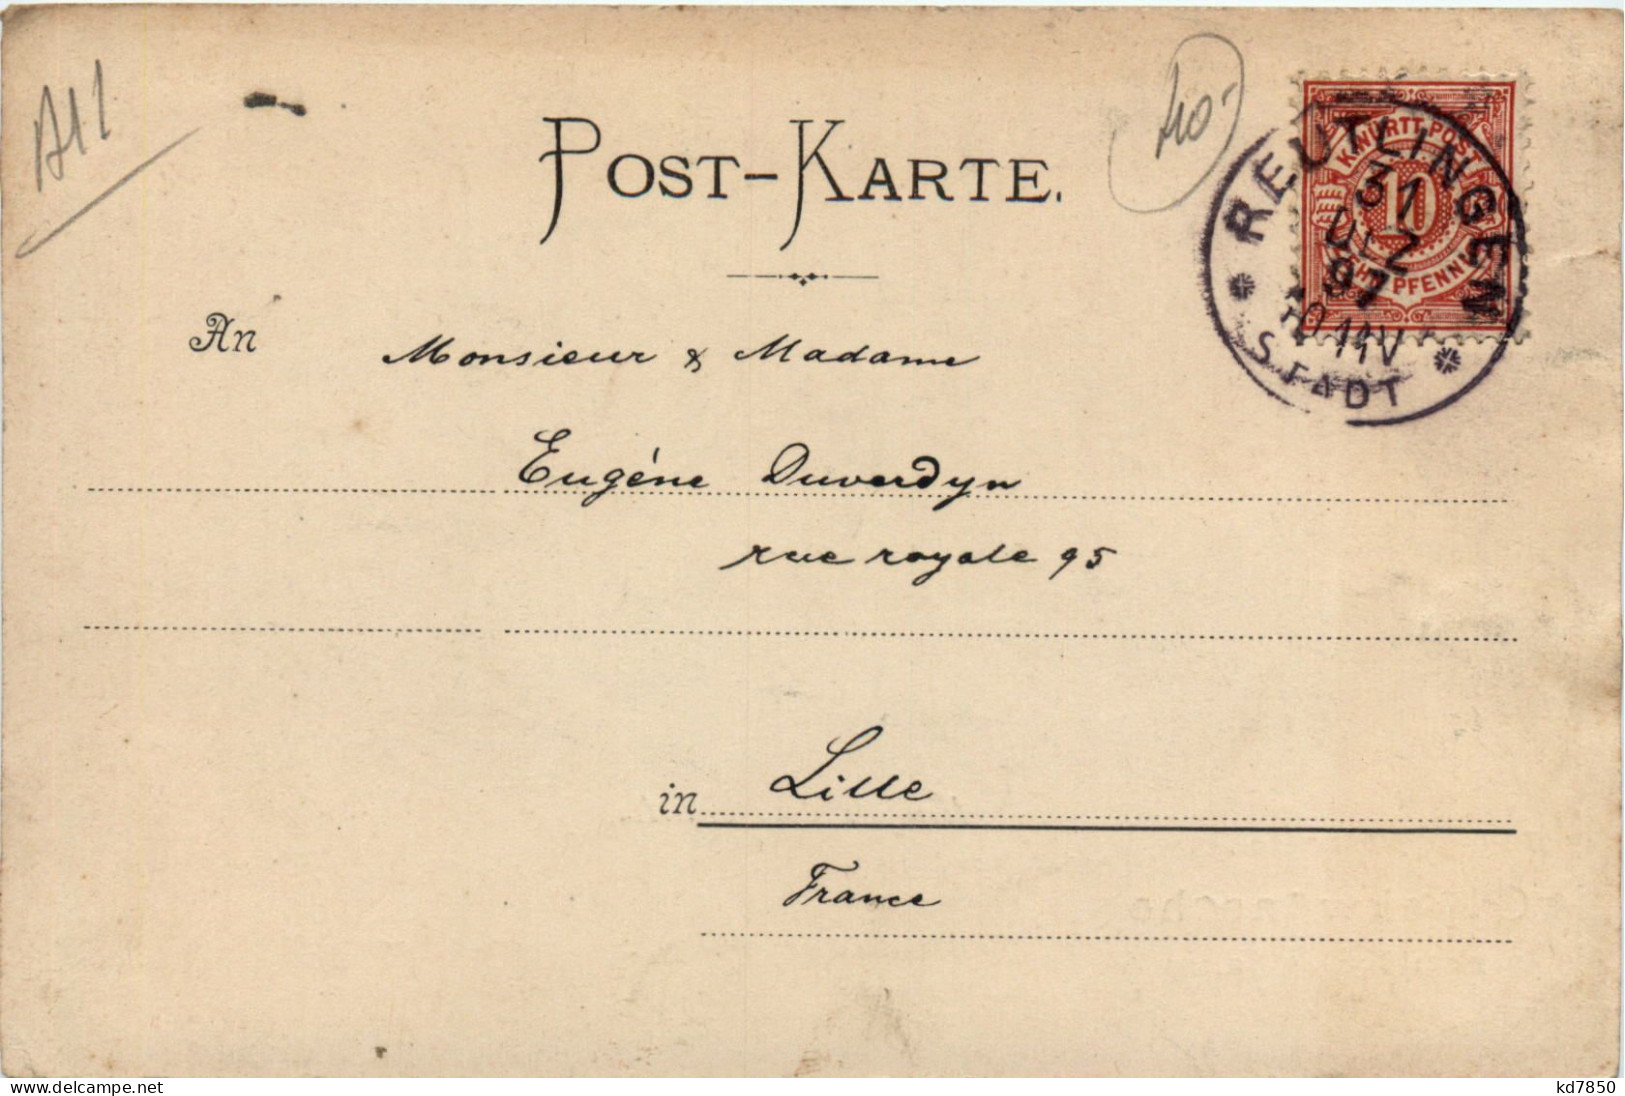 A11
40.-
POST-KARTE.
K. WÜRTT. POST
10
ZEHN PFENNIG
REUTLINGEN
31
DEZ
97
10-11 V
STADT
An
Monsieur & Madame
Eugéne Duverdyn
rue royale 95
in Lille
France
www.delcampe.net
kd7850